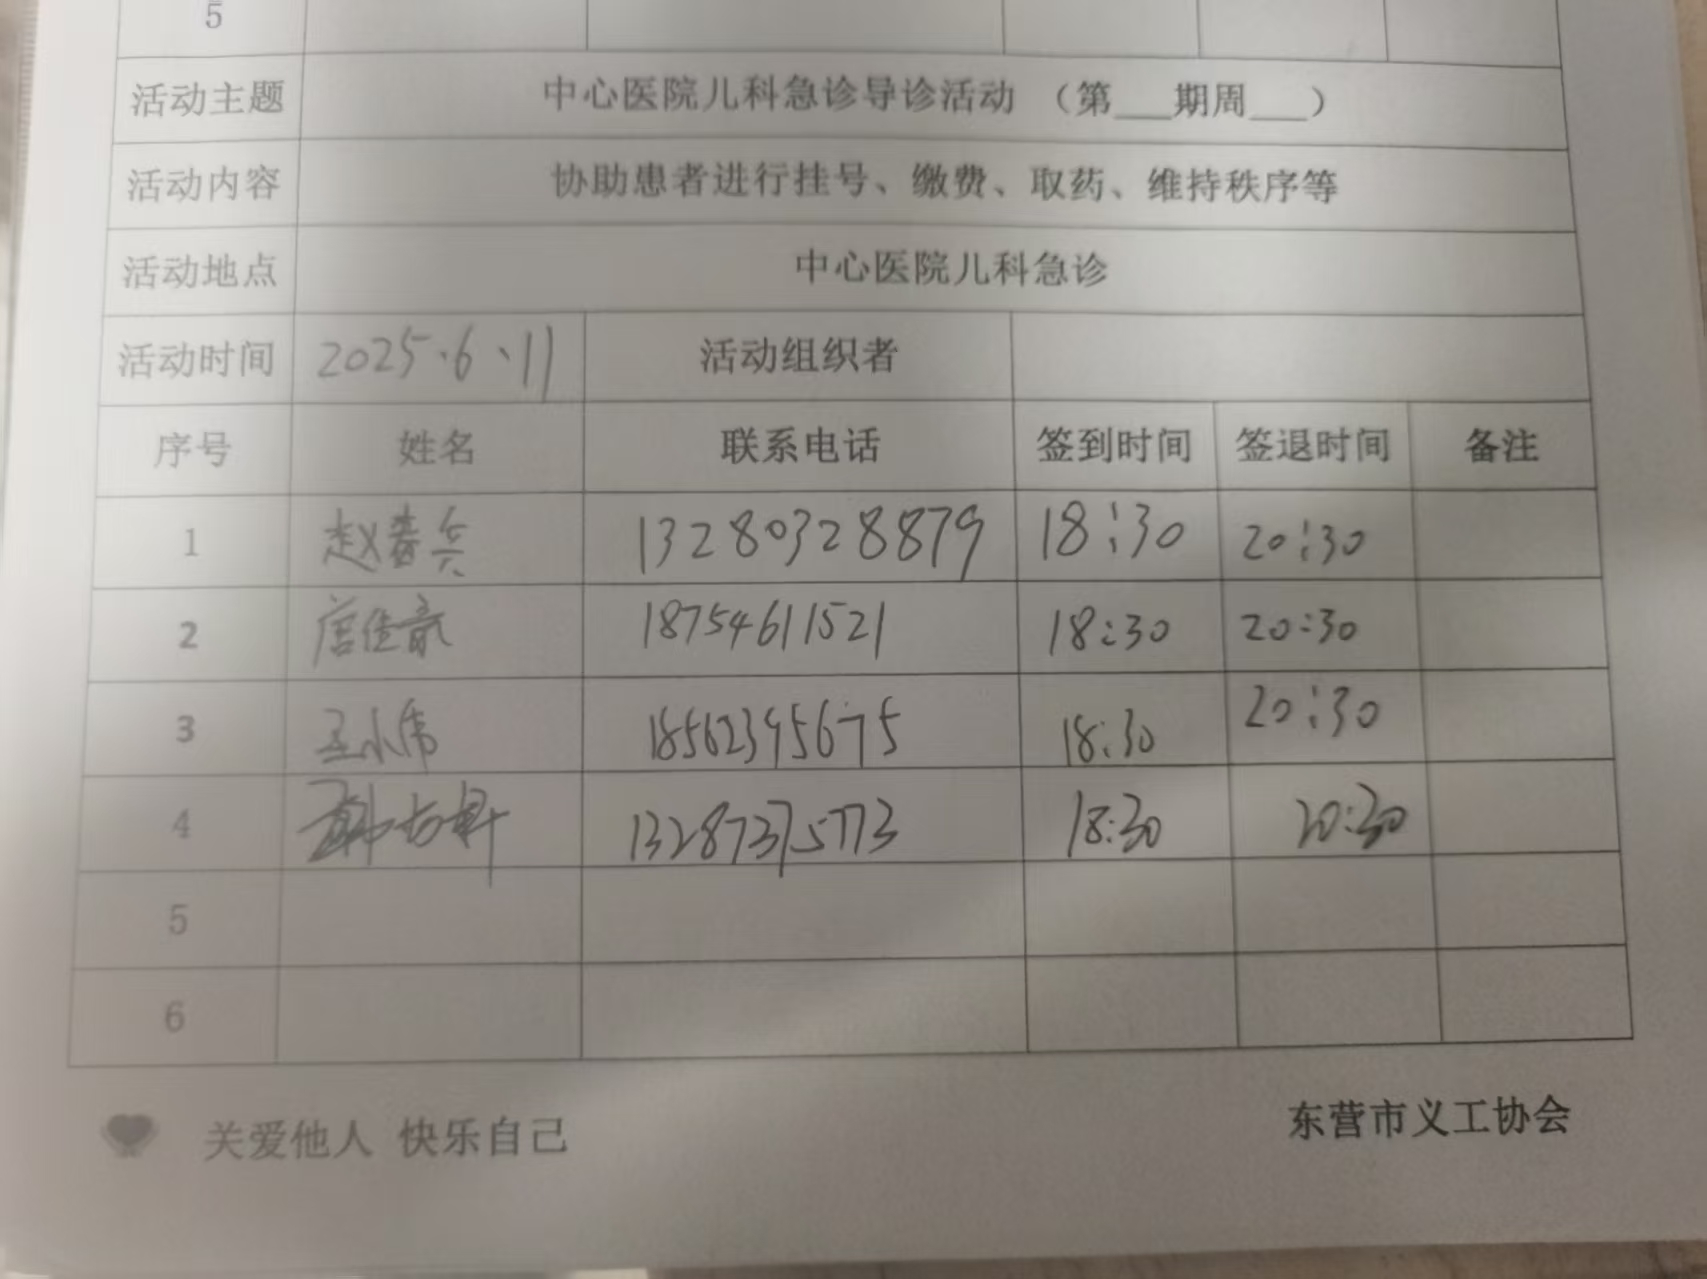 5
活动主题 中心医院儿科急诊导诊活动 （第___期周___）
活动内容 协助患者进行挂号、缴费、取药、维持秩序等
活动地点 中心医院儿科急诊
活动时间 2025.6.11 活动组织者
序号 姓名 联系电话 签到时间 签退时间 备注
1 赵春兵 13280328879 18:30 20:30
2 18754611521 18:30 20:30
3 王小伟 18562395675 18:30 20:30
4 13287375773 18:30 20:30
5
6
关爱他人 快乐自己 东营市义工协会